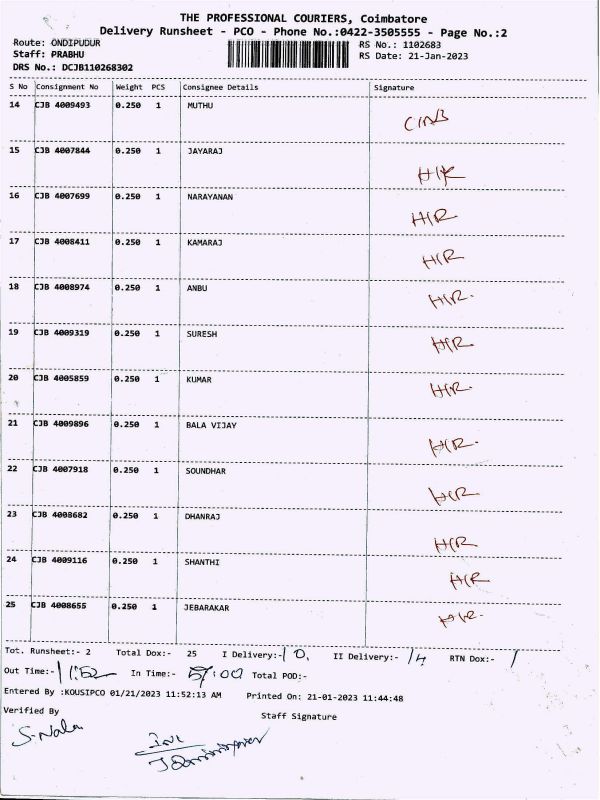 THE PROFESSIONAL COURIERS, Coimbatore
Delivery Runsheet - PCO - Phone No.:0422-3505555 - Page No.:2
Route: ONDIPUDUR RS No.: 1102683
Staff: PRABHU RS Date: 21-Jan-2023
DRS No.: DCJB110268302
S No Consignment No Weight PCS Consignee Details Signature
14 CJB 4009493 0.250 1 MUTHU
15 CJB 4007844 0.250 1 JAYARAJ H/R
16 CJB 4007699 0.250 1 NARAYANAN H/R
17 CJB 4008411 0.250 1 KAMARAJ H/R
18 CJB 4008974 0.250 1 ANBU H/R.
19 CJB 4009319 0.250 1 SURESH H/R.
20 CJB 4005859 0.250 1 KUMAR H/R.
21 CJB 4009896 0.250 1 BALA VIJAY H/R.
22 CJB 4007918 0.250 1 SOUNDHAR H/R
23 CJB 4008682 0.250 1 DHANRAJ H/R
24 CJB 4009116 0.250 1 SHANTHI H/R
25 CJB 4008655 0.250 1 JEBARAKAR H/R.
Tot. Runsheet:- 2 Total Dox:- 25 I Delivery:- II Delivery:- RTN Dox:-
Out Time:- 11:52 In Time:- Total POD:-
Entered By :KOUSIPCO 01/21/2023 11:52:13 AM Printed On: 21-01-2023 11:44:48
Verified By Staff Signature